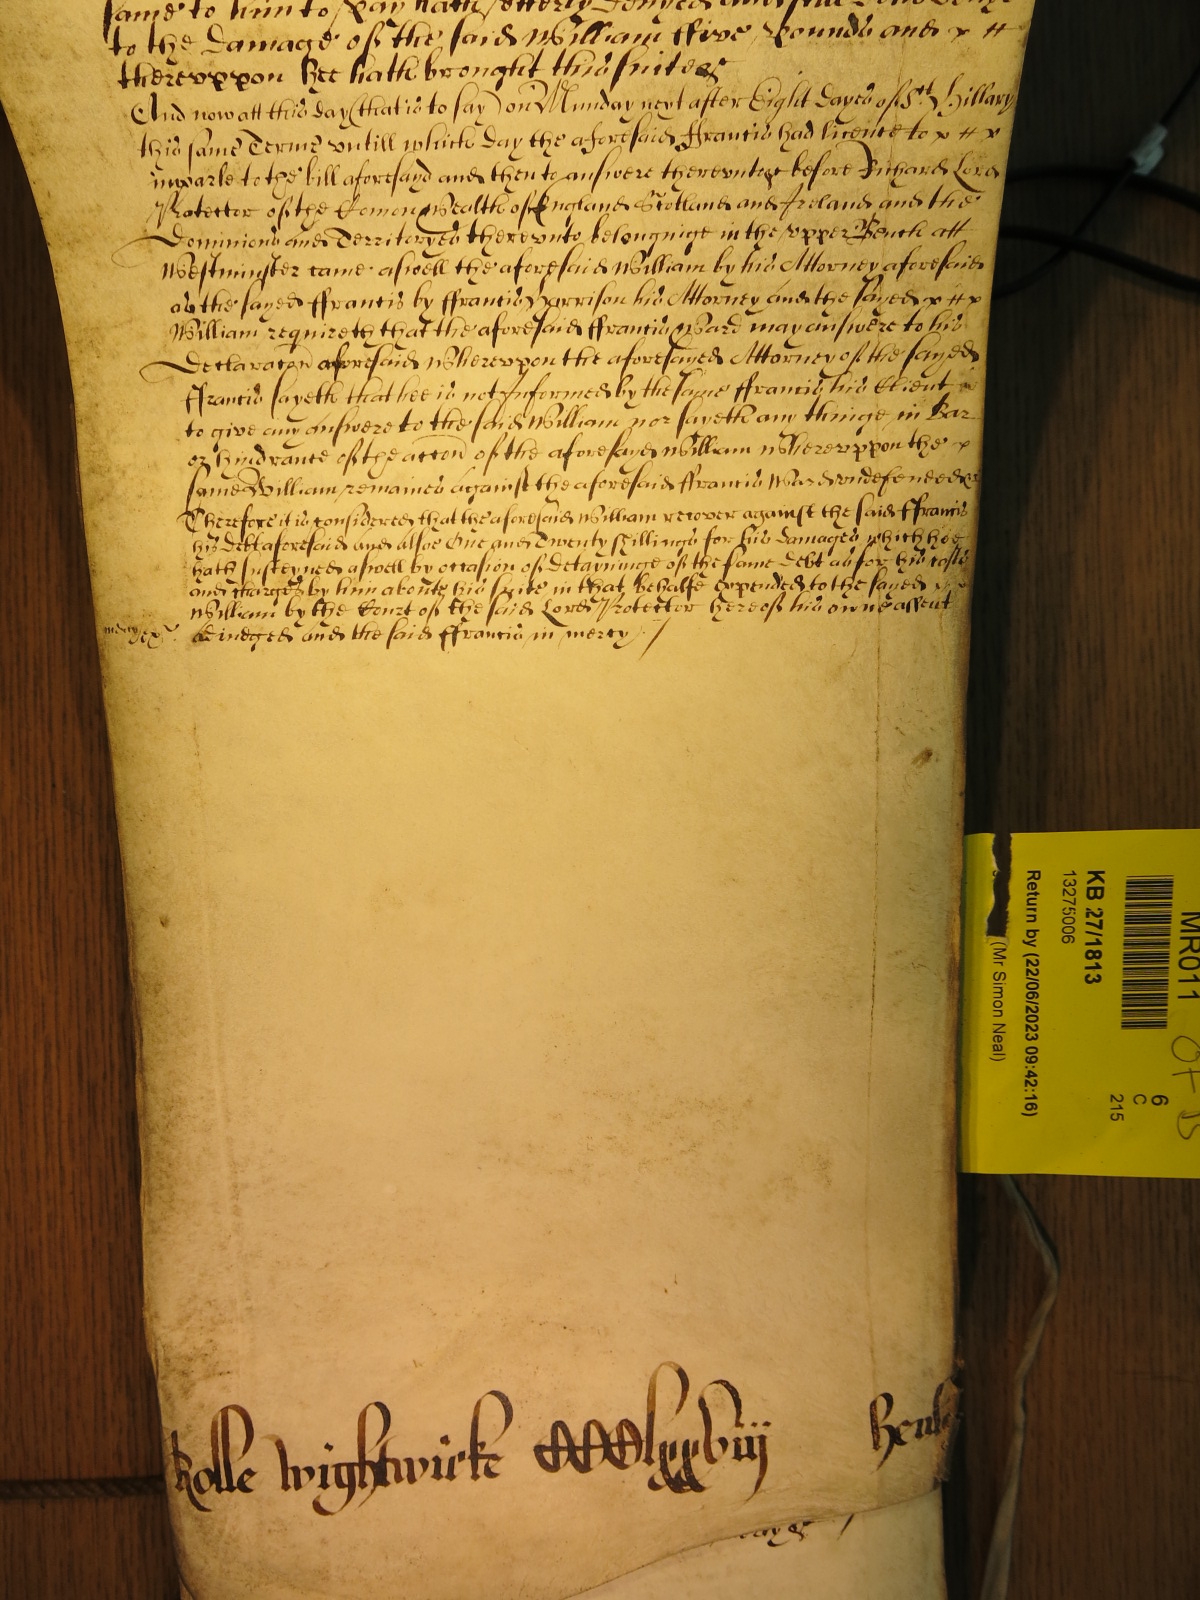 same to him to pay hath utterly denyed and still doth denye
to the damage of the said William ffive Pounds and x #
therevppon Hee hath brought this suite &c
And now att this day (that is to say) on Munday next after Eight dayes of St Hillary
this same Terme vntill which day the aforesaid ffrancis had licence to x # x
imparle to the bill aforesayd and then to answere therevnto &c before Richard Lord
Protector of the Comonwealth of England Scotland and Ireland and the
Dominions and Territoryes therevnto belonginge in the vpper Bench att
Westminster came aswell the aforesaid William by his Attorney aforesaid
as the sayed ffrancis by ffrancis Harrison his Attorney and the sayed x # x
William requireth that the aforesaid ffrancis Ward may answere to his
Declaracon aforesaid Wherevpon the aforesayed Attorney of the sayed
ffrancis sayeth that hee is not Informed by the same ffrancis his Client
to give any answere to the said William nor sayeth any thinge in Bar
or hindrance of the accon of the aforesayd William Wherevppon the x
same William remaines against the aforesaid ffrancis Ward vndefended &c
Therefore it is considered that the aforesaid William recover against the said ffrancis
his Debt aforesaid and alsoe One and Twenty shillings for his damages which hee
hath susteyned aswell by occasion of detayninge of the same Debt as for his costs
and charges by him aboute his suite in that behalfe expended to the sayed x x
William by the Court of the said Lord Protector hereof his owne assent
adiudged and the said ffrancis in mercy /
Rolle Wightwicke CCClxxviij
MR011
6
C
215
KB 27/1813
13275006
Return by (22/06/2023 09:42:16)
(Mr Simon Neal)